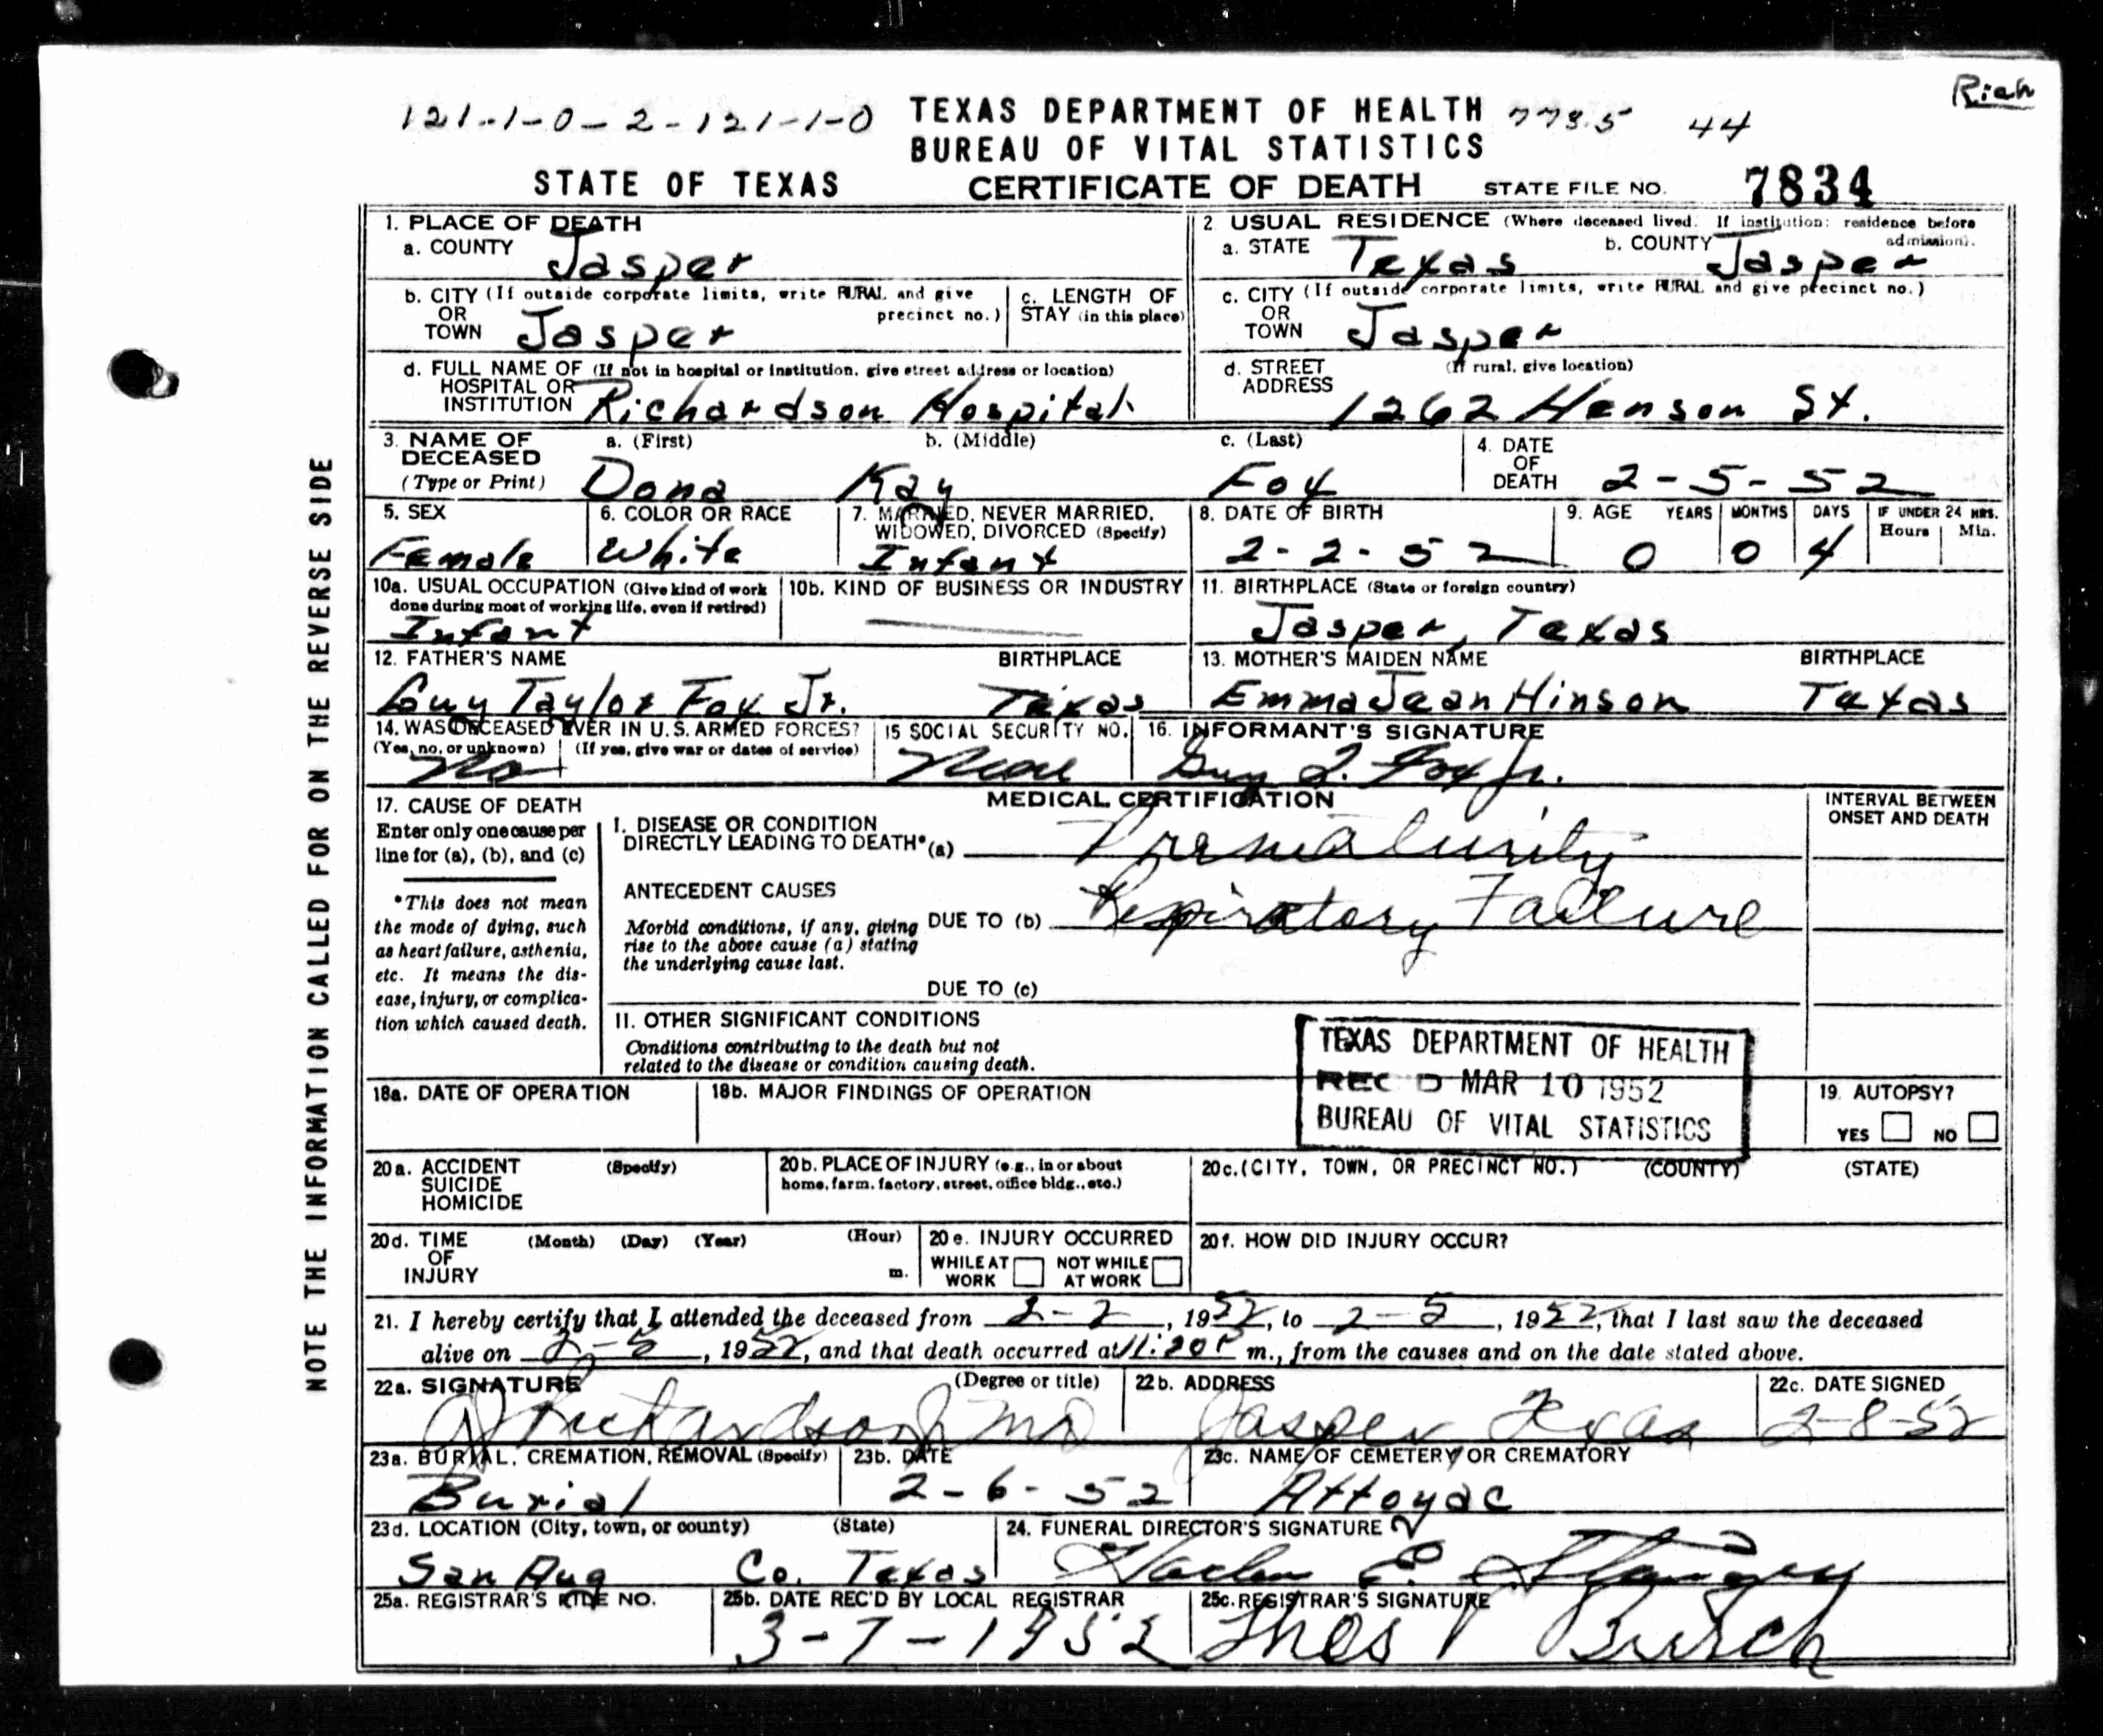 Rich
121-1-0-2-121-1-0 TEXAS DEPARTMENT OF HEALTH 7735 44
BUREAU OF VITAL STATISTICS
STATE OF TEXAS CERTIFICATE OF DEATH STATE FILE NO. 7834
NOTE THE INFORMATION CALLED FOR ON THE REVERSE SIDE
1. PLACE OF DEATH
a. COUNTY Jasper
2. USUAL RESIDENCE (Where deceased lived. If institution: residence before admission).
a. STATE Texas b. COUNTY Jasper
b. CITY (If outside corporate limits, write RURAL and give precinct no.)
OR
TOWN Jasper
c. LENGTH OF
STAY (in this place)
c. CITY (If outside corporate limits, write RURAL and give precinct no.)
OR
TOWN Jasper
d. FULL NAME OF (If not in hospital or institution, give street address or location)
HOSPITAL OR
INSTITUTION Richardson Hospital
d. STREET (If rural, give location)
ADDRESS 1262 Henson St.
3. NAME OF DECEASED (Type or Print)
a. (First) b. (Middle) c. (Last)
Dona Kay Fox
4. DATE OF DEATH 2-5-52
5. SEX
Female
6. COLOR OR RACE
White
7. MARRIED, NEVER MARRIED,
WIDOWED, DIVORCED (Specify)
Infant
8. DATE OF BIRTH
2-2-52
9. AGE YEARS MONTHS DAYS IF UNDER 24 HRS.
Hours Min.
0 0 4
10a. USUAL OCCUPATION (Give kind of work
done during most of working life, even if retired)
Infant
10b. KIND OF BUSINESS OR INDUSTRY
11. BIRTHPLACE (State or foreign country)
Jasper, Texas
12. FATHER'S NAME BIRTHPLACE
Guy Taylor Fox Jr. Texas
13. MOTHER'S MAIDEN NAME BIRTHPLACE
Emma Jean Hinson Texas
14. WAS DECEASED EVER IN U.S. ARMED FORCES?
(Yes, no, or unknown) (If yes, give war or dates of service)
No
15 SOCIAL SECURITY NO.
None
16. INFORMANT'S SIGNATURE
Guy T. Fox Jr.
17. CAUSE OF DEATH
Enter only one cause per
line for (a), (b), and (c)
*This does not mean
the mode of dying, such
as heart failure, asthenia,
etc. It means the dis-
ease, injury, or complica-
tion which caused death.
MEDICAL CERTIFICATION
INTERVAL BETWEEN
ONSET AND DEATH
I. DISEASE OR CONDITION
DIRECTLY LEADING TO DEATH* (a) Prematurity
ANTECEDENT CAUSES
Morbid conditions, if any, giving
rise to the above cause (a) stating
the underlying cause last.
DUE TO (b) Respiratory Failure
DUE TO (c)
II. OTHER SIGNIFICANT CONDITIONS
Conditions contributing to the death but not
related to the disease or condition causing death.
TEXAS DEPARTMENT OF HEALTH
REC D MAR 10 1952
BUREAU OF VITAL STATISTICS
18a. DATE OF OPERATION
18b. MAJOR FINDINGS OF OPERATION
19. AUTOPSY?
YES NO
20a. ACCIDENT (Specify)
SUICIDE
HOMICIDE
20b. PLACE OF INJURY (e.g., in or about
home, farm, factory, street, office bldg., etc.)
20c. (CITY, TOWN, OR PRECINCT NO.) (COUNTY) (STATE)
20d. TIME (Month) (Day) (Year) (Hour)
OF
INJURY m.
20e. INJURY OCCURRED
WHILE AT WORK NOT WHILE AT WORK
20f. HOW DID INJURY OCCUR?
21. I hereby certify that I attended the deceased from 2-2, 1952, to 2-5, 1952, that I last saw the deceased
alive on 2-5, 1952, and that death occurred at 11:20 P m., from the causes and on the date stated above.
22a. SIGNATURE (Degree or title)
Richardson MD
22b. ADDRESS
Jasper Texas
22c. DATE SIGNED
2-8-52
23a. BURIAL, CREMATION, REMOVAL (Specify)
Burial
23b. DATE
2-6-52
23c. NAME OF CEMETERY OR CREMATORY
Attoyac
23d. LOCATION (City, town, or county) (State)
San Aug Co. Texas
24. FUNERAL DIRECTOR'S SIGNATURE
E.
25a. REGISTRAR'S FILE NO.
25b. DATE REC'D BY LOCAL REGISTRAR
3-7-1952
25c. REGISTRAR'S SIGNATURE
Burch